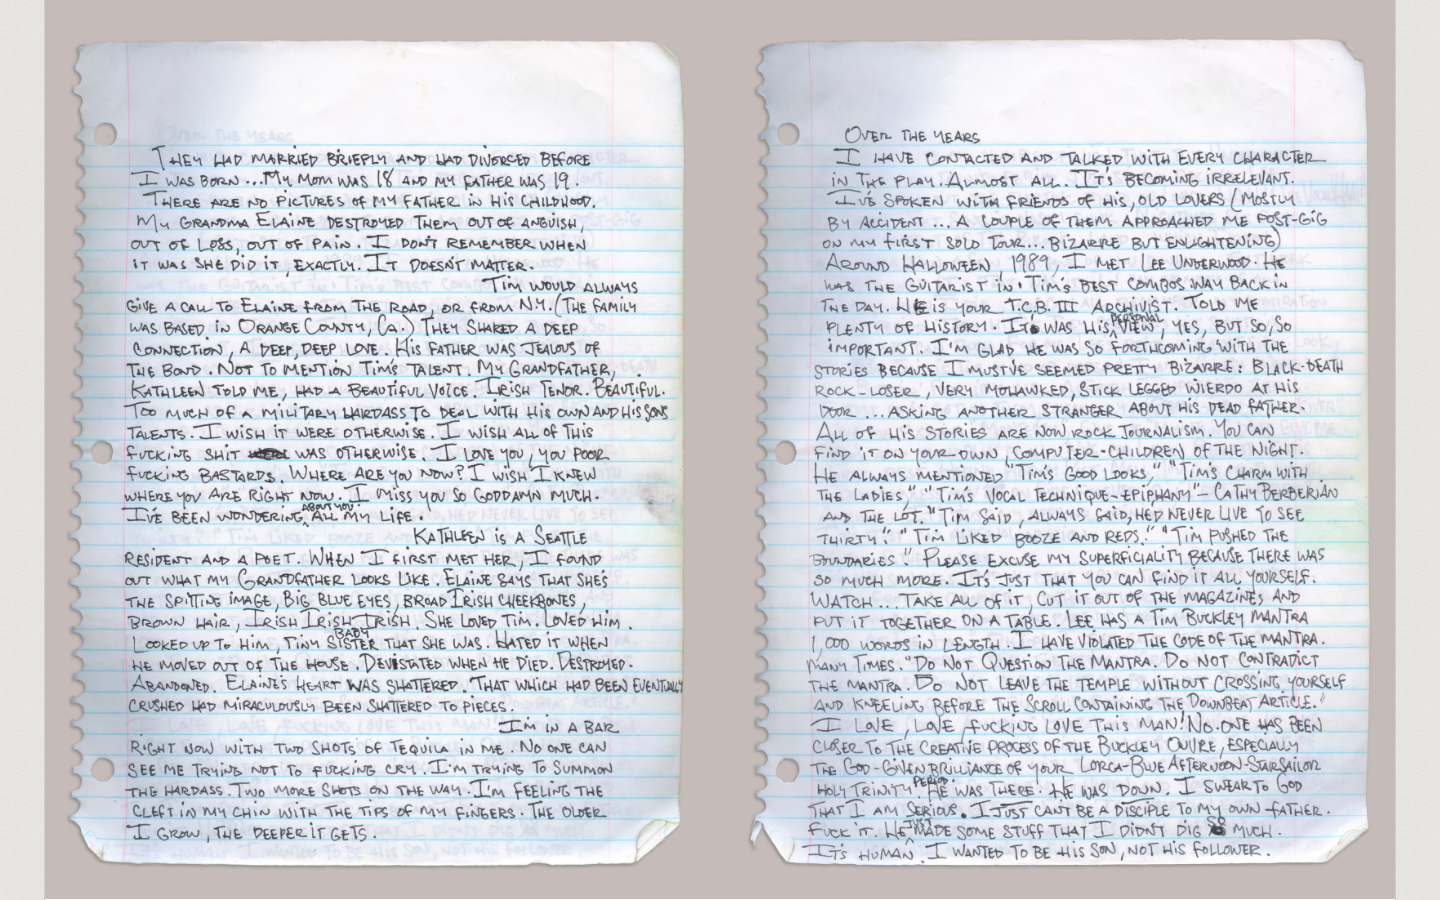 They had married briefly and had divorced before
I was born... My Mom was 18 and my father was 19.
There are no pictures of my father in his childhood.
My Grandma Elaine destroyed them out of anguish,
out of loss, out of pain. I don't remember when
it was she did it, exactly. It doesn't matter.
Tim would always
give a call to Elaine from the road, or from N.Y. (The family
was based in Orange County, Ca.) They shared a deep
connection, a deep, deep love. His father was jealous of
the bond. Not to mention Tim's talent. My Grandfather,
Kathleen told me, had a beautiful voice. Irish tenor. Beautiful.
Too much of a military hardass to deal with his own and his sons
talents. I wish it were otherwise. I wish all of this
fucking shit was otherwise. I love you, you poor
fucking bastards. Where are you now? I wish I knew
where you are right now. I miss you so goddamn much.
I've been wondering about you all my life.
Kathleen is a Seattle
resident and a poet. When I first met her, I found
out what my Grandfather looks like. Elaine says that she's
the spitting image, big blue eyes, broad Irish cheekbones,
brown hair. Irish Irish Irish. She loved Tim. Loved him.
Looked up to him, tiny baby sister that she was. Hated it when
he moved out of the house. Devistated when he died. Destroyed.
Abandoned. Elaine's heart was shattered. That which had been eventually
crushed had miraculously been shattered to pieces.
I'm in a bar
right now with two shots of tequila in me. No one can
see me trying not to fucking cry. I'm trying to summon
the hardass. Two more shots on the way. I'm feeling the
cleft in my chin with the tips of my fingers. The older
I grow, the deeper it gets.
Over the years
I have contacted and talked with every character
in the play. Almost all. It's becoming irrelevant.
I've spoken with friends of his, old lovers (mostly
by accident... a couple of them approached me post-gig
on my first solo tour... bizarre but enlightening)
Around Halloween, 1989, I met Lee Underwood. He
was the guitarist in Tim's best combos way back in
the day. He is your T.C.B. III Archivist. Told me
plenty of history. It was his personal view, yes, but so, so
important. I'm glad he was so forthcoming with the
stories because I must've seemed pretty bizarre: black-death
rock-loser, very mohawked, stick legged wierdo at his
door... asking another stranger about his dead father.
All of his stories are now rock journalism. You can
find it on your own, computer-children of the night.
He always mentioned "Tim's good looks," "Tim's charm with
the ladies," "Tim's vocal technique-epiphany" - Cathy Berberian
and the lot. "Tim said, always said, he'd never live to see
thirty." "Tim liked booze and reds." "Tim pushed the
boundaries". Please excuse my superficiality because there was
so much more. It's just that you can find it all yourself.
Watch... Take all of it, cut it out of the magazines and
put it together on a table. Lee has a Tim Buckley mantra
1,000 words in length. I have violated the code of the mantra.
many times. "Do not question the mantra. Do not contradict
the mantra. Do not leave the temple without crossing yourself
and kneeling before the scroll containing the Downbeat article."
I love, love, fucking love this man! No-one has been
closer to the creative process of the Buckley ouvre, especially
the God-given brilliance of your Lorca-Blue Afternoon-Starsailor
Holy Trinity period. He was there. He was down. I swear to God
that I am serious. I just can't be a disciple to my own father.
Fuck it. He just made some stuff that I didn't dig so much.
It's human. I wanted to be his son, not his follower.